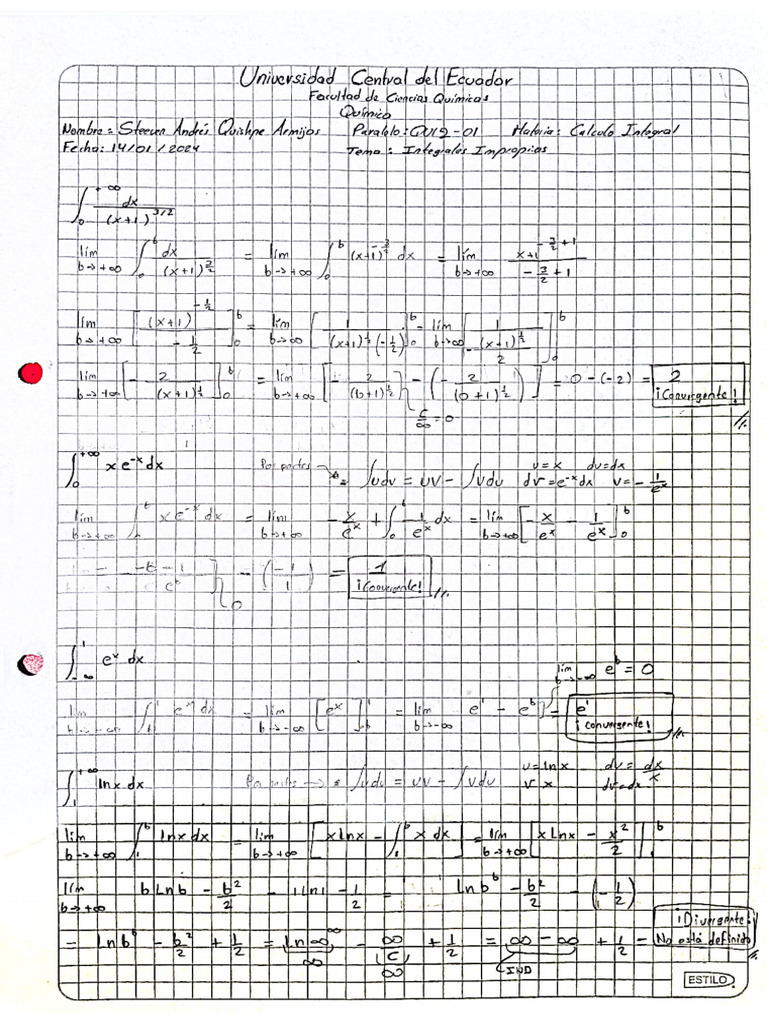 Universidad Central del Ecuador
Facultad de Ciencias Químicas
Química
Nombre: Steeven Andrés Quishpe Armijos Paralelo: QU19-01 Materia: Calculo Integral
Fecha: 14/01/2024 Tema: Integrales Impropias
∫₀^{+∞} dx/(x+1)^{3/2}
lím b→+∞ ∫₀^b dx/(x+1)^{3/2} = lím b→+∞ ∫₀^b (x+1)^{-3/2} dx = lím b→+∞ x+1^{-3/2+1}/(-3/2+1)
lím b→+∞ [(x+1)^{-1/2}/(-1/2)]₀^b = lím b→∞ [1/((x+1)^{1/2}(-1/2))]₀^b = lím b→∞ [1/(-(x+1)^{1/2}/2)]₀^b
lím b→+∞ [-2/(x+1)^{1/2}]₀^b = lím b→+∞ [-2/(b+1)^{1/2} - (-2/(0+1)^{1/2})] = 0-(-2) = 2 ¡Convergente!
C/∞ = 0
∫₀^{+∞} x e^{-x} dx Por partes → = ∫udv = uv - ∫vdu u=x du=dx dv=e^{-x}dx v=-1/e^x
lím b→+∞ ∫ x e^{-x} dx = lím b→+∞ -x/e^x + ∫₀^b 1/e^x dx = lím b→+∞ [-x/e^x - 1/e^x]₀^b
-b-1/e^b] - (-1/1) = 1 ¡Convergente!
0
∫_{-∞}^1 e^x dx
lím b→-∞ e^b = 0
lím b→-∞ ∫_b^1 e^x dx = lím b→-∞ [e^x]_b^1 = lím b→-∞ e^1 - e^b] = e^1 ¡convergente!
∫₁^{+∞} lnx dx Por partes → = ∫udv = uv - ∫vdu u=lnx du=dx/x
v x dv=dx
lím b→+∞ ∫₁^b lnx dx = lím b→+∞ [xLnx - ∫₁^b x dx] = lím b→+∞ [xLnx - x²/2]₁^b
lím b→+∞ bLnb - b²/2 - 1Ln1 - 1/2 = Lnb^b - b²/2 - (-1/2)
= Lnb^b - b²/2 + 1/2 = Ln∞^∞ - ∞/C + 1/2 = ∞-∞ + 1/2 = ¡Divergente! No está definido
∞ ∞ IND
ESTILO